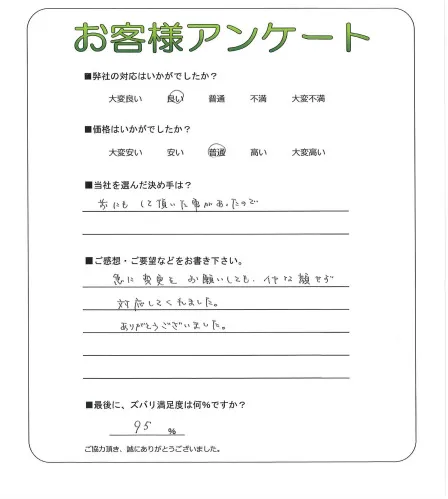 お客様アンケート
■弊社の対応はいかがでしたか?
大変良い 良い 普通 不満 大変不満
■価格はいかがでしたか?
大変安い 安い 普通 高い 大変高い
■当社を選んだ決め手は?
前にも して頂いた事があったので
■ご感想・ご要望などをお書き下さい。
急に変更を お願いしても、イヤな顔せず
対応してくれました。
ありがとうございました。
■最後に、ズバリ満足度は何%ですか?
95 %
ご協力頂き、誠にありがとうございました。